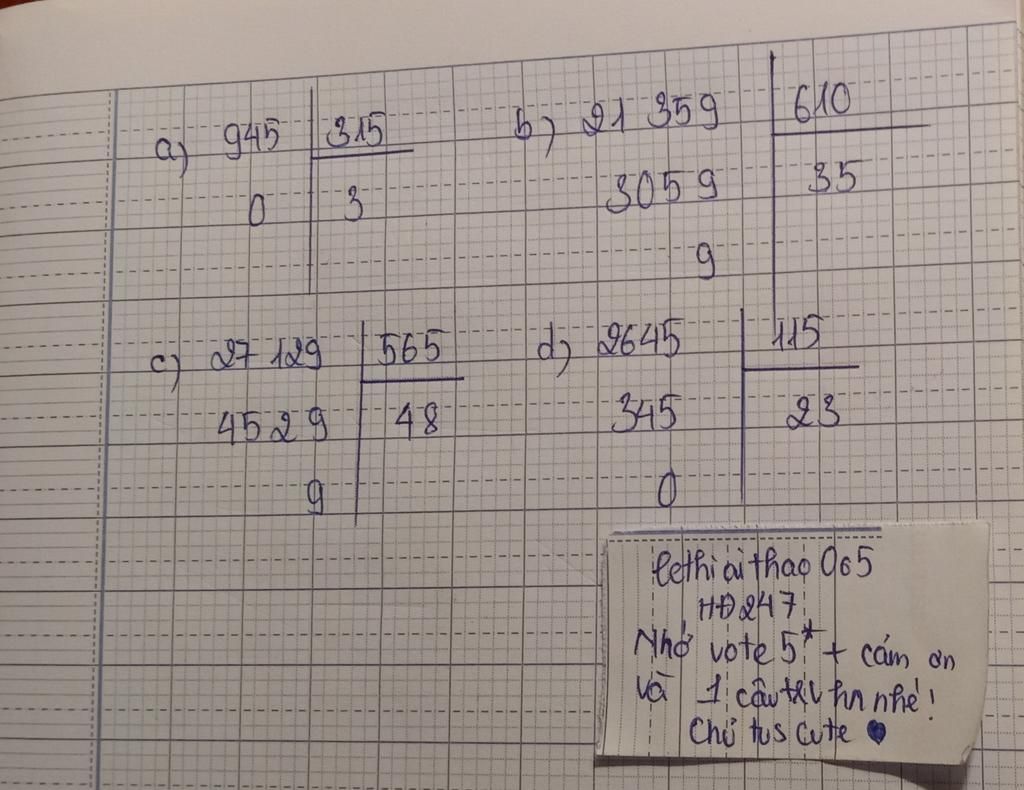 a) 945 315
0 3
b) 21 359 610
3059 35
9
c) 27 129 565
4529 48
9
d) 2645 115
345 23
0
lethiaithao 065
HĐ247
Nhớ vote 5* + cảm ơn
và 1 câu trl hn nhé!
Chủ tus cute